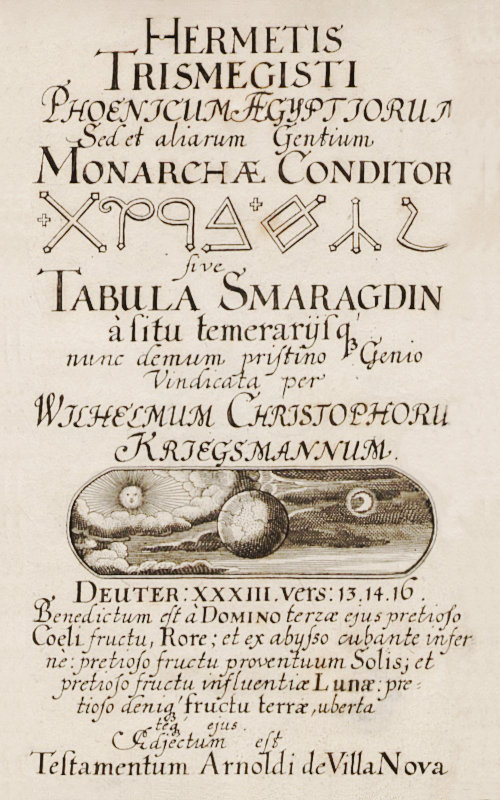 HERMETIS
TRISMEGISTI
PHOENICUM ÆGYPTIORUM
Sed et aliarum Gentium
MONARCHÆ CONDITOR
sive
TABULA SMARAGDIN
à situ temerarijsq́₃
nunc demum pristino Genio
Vindicata per
WILHELMUM CHRISTOPHORU
KRIEGSMANNUM.
DEUTER: XXXIII. vers: 13. 14. 16.
Benedictum est à DOMINO terræ ejus pretioso
Coeli fructu, Rore; et ex abysso cubante infer
nè: pretioso fructu proventuum Solis; et
pretioso fructu influentiæ Lunæ: pre-
tioso deniq́₃ fructu terræ, uberta
teq́₃ ejus.
Adjectum est
Testamentum Arnoldi de Villa Nova